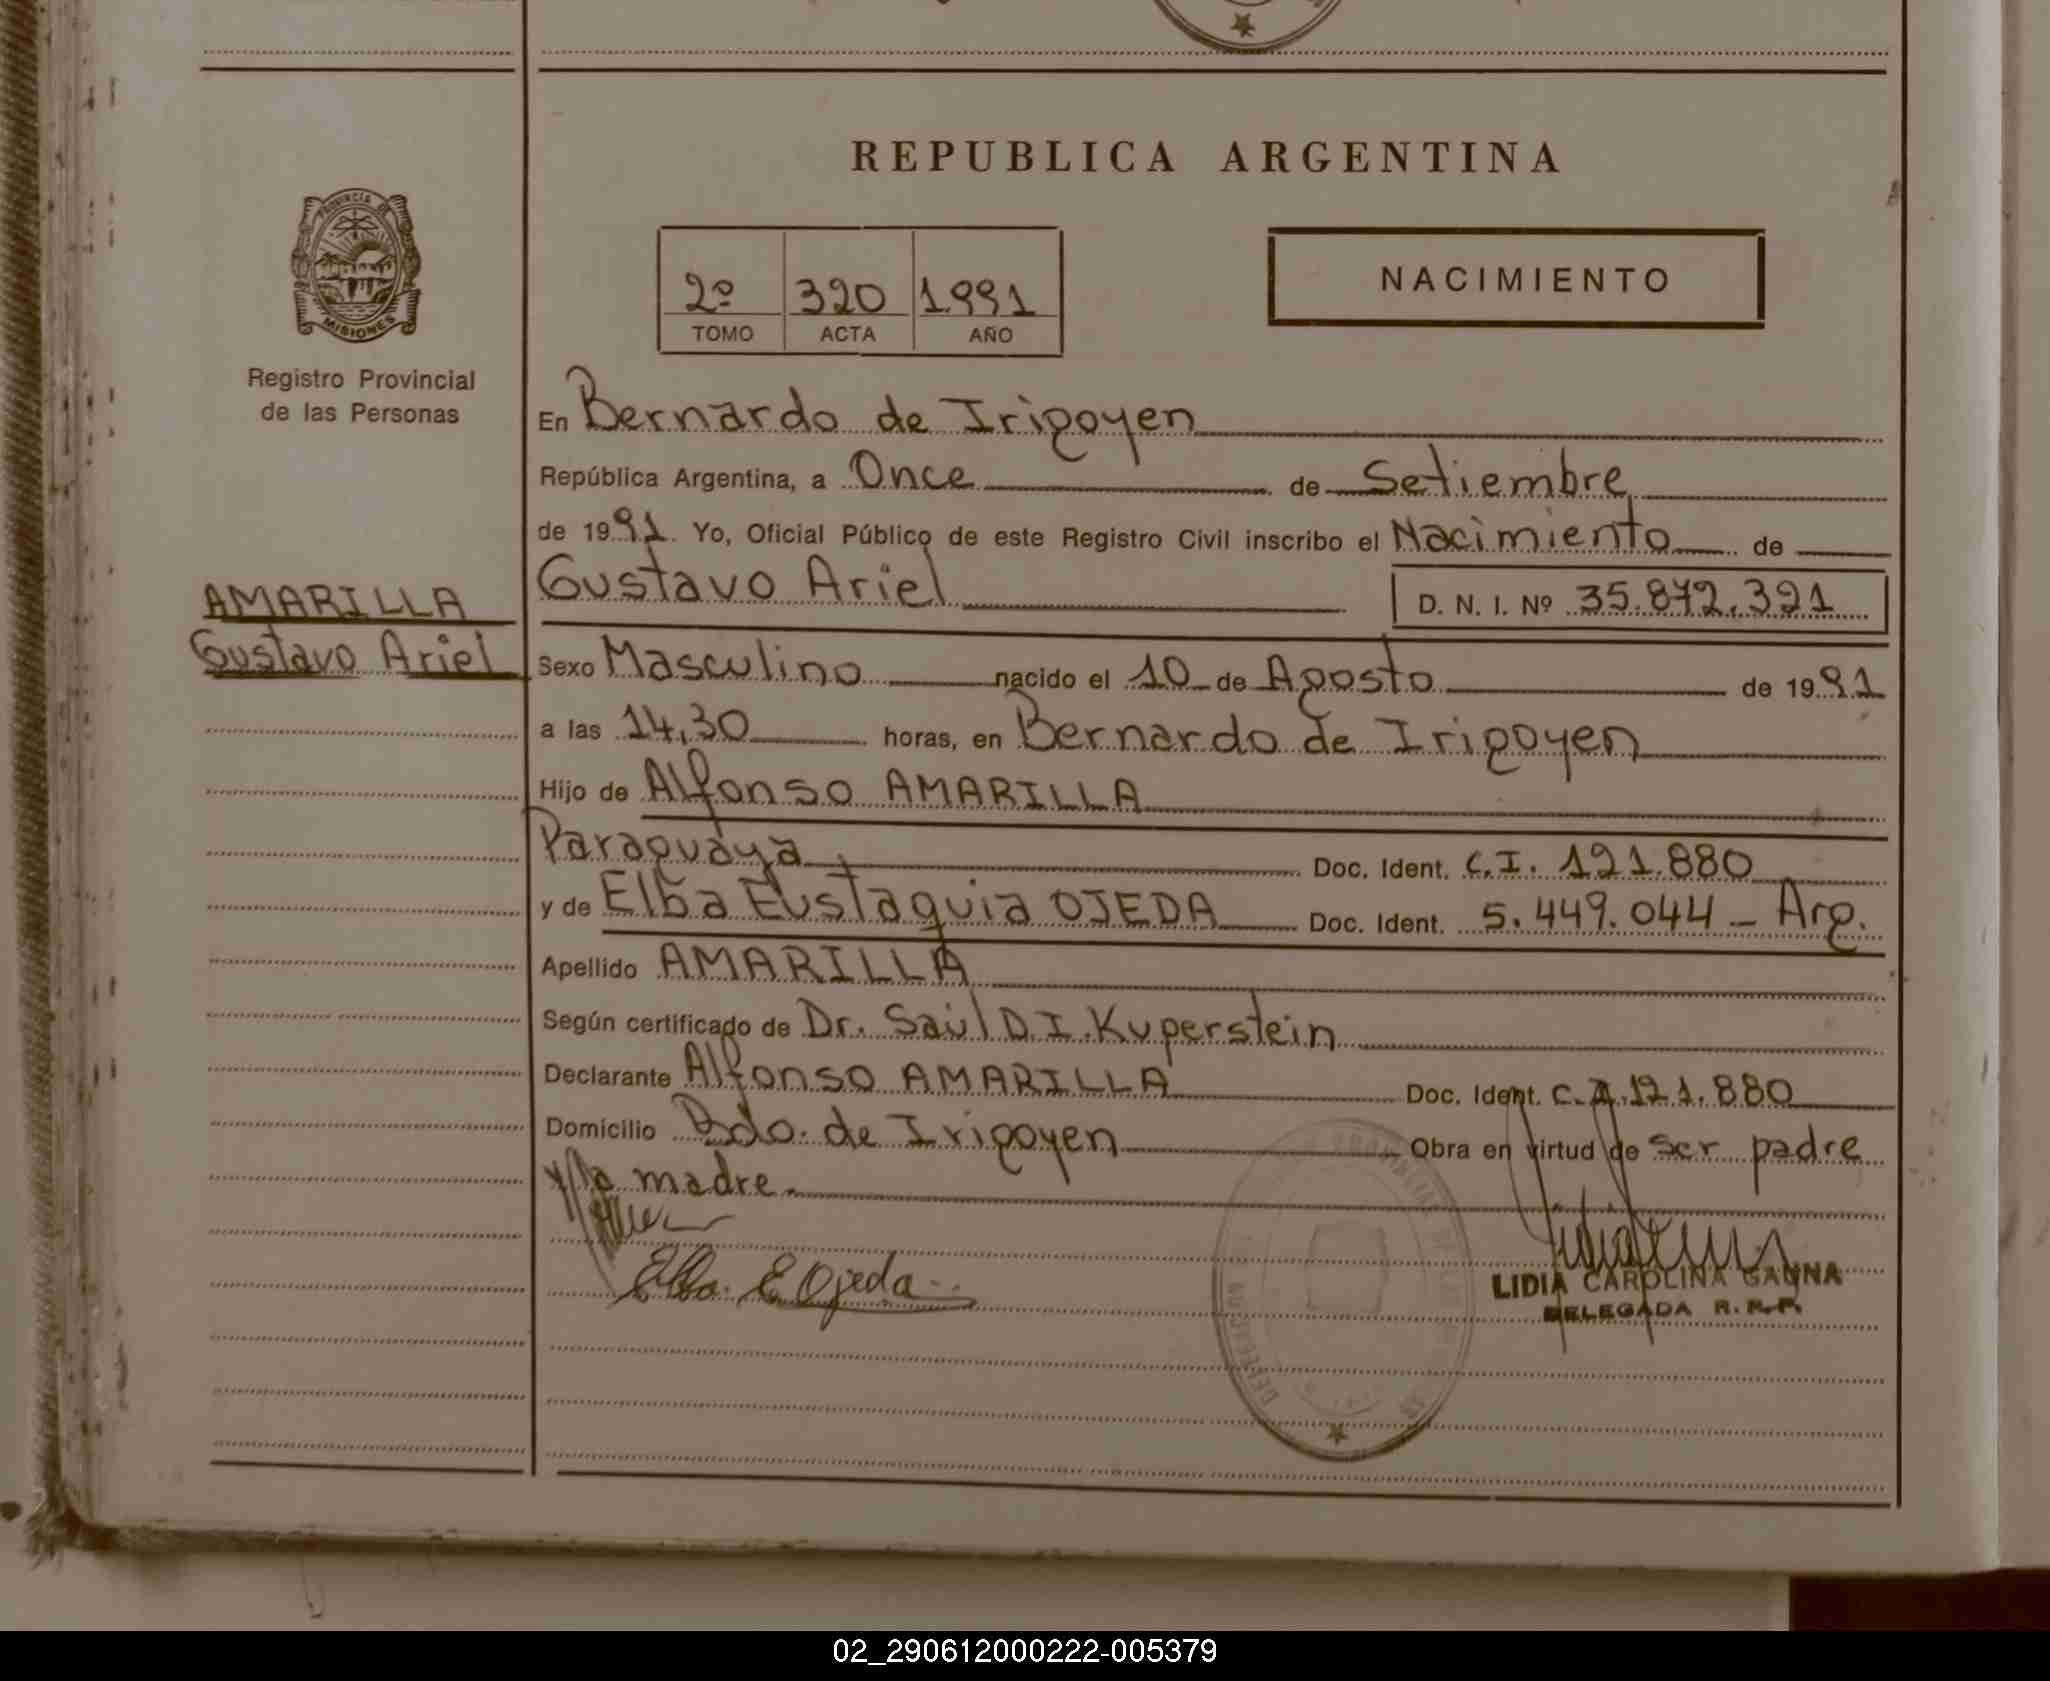 REPUBLICA ARGENTINA
PROVINCIA DE
MISIONES
Registro Provincial
de las Personas
2º 320 1.991
TOMO ACTA AÑO
NACIMIENTO
En Bernardo de Irigoyen
República Argentina, a Once de Setiembre
de 1991. Yo, Oficial Público de este Registro Civil inscribo el Nacimiento de
AMARILLA
Gustavo Ariel
Gustavo Ariel D. N. I. Nº 35.872.391
Sexo Masculino nacido el 10 de Agosto de 1991
a las 14,30 horas, en Bernardo de Irigoyen
Hijo de Alfonso AMARILLA
Paraguaya Doc. Ident. C.I. 121.880
y de Elba Eustaquia OJEDA Doc. Ident. 5.449.044 - Arg.
Apellido AMARILLA
Según certificado de Dr. Saúl D.I. Kuperstein
Declarante Alfonso AMARILLA Doc. Ident. C.I. 121.880
Domicilio Bdo. de Irigoyen Obra en virtud de ser padre
y la madre.
Elba E Ojeda
LIDIA CAROLINA GAUNA
DELEGADA R.P.P.
02_290612000222-005379